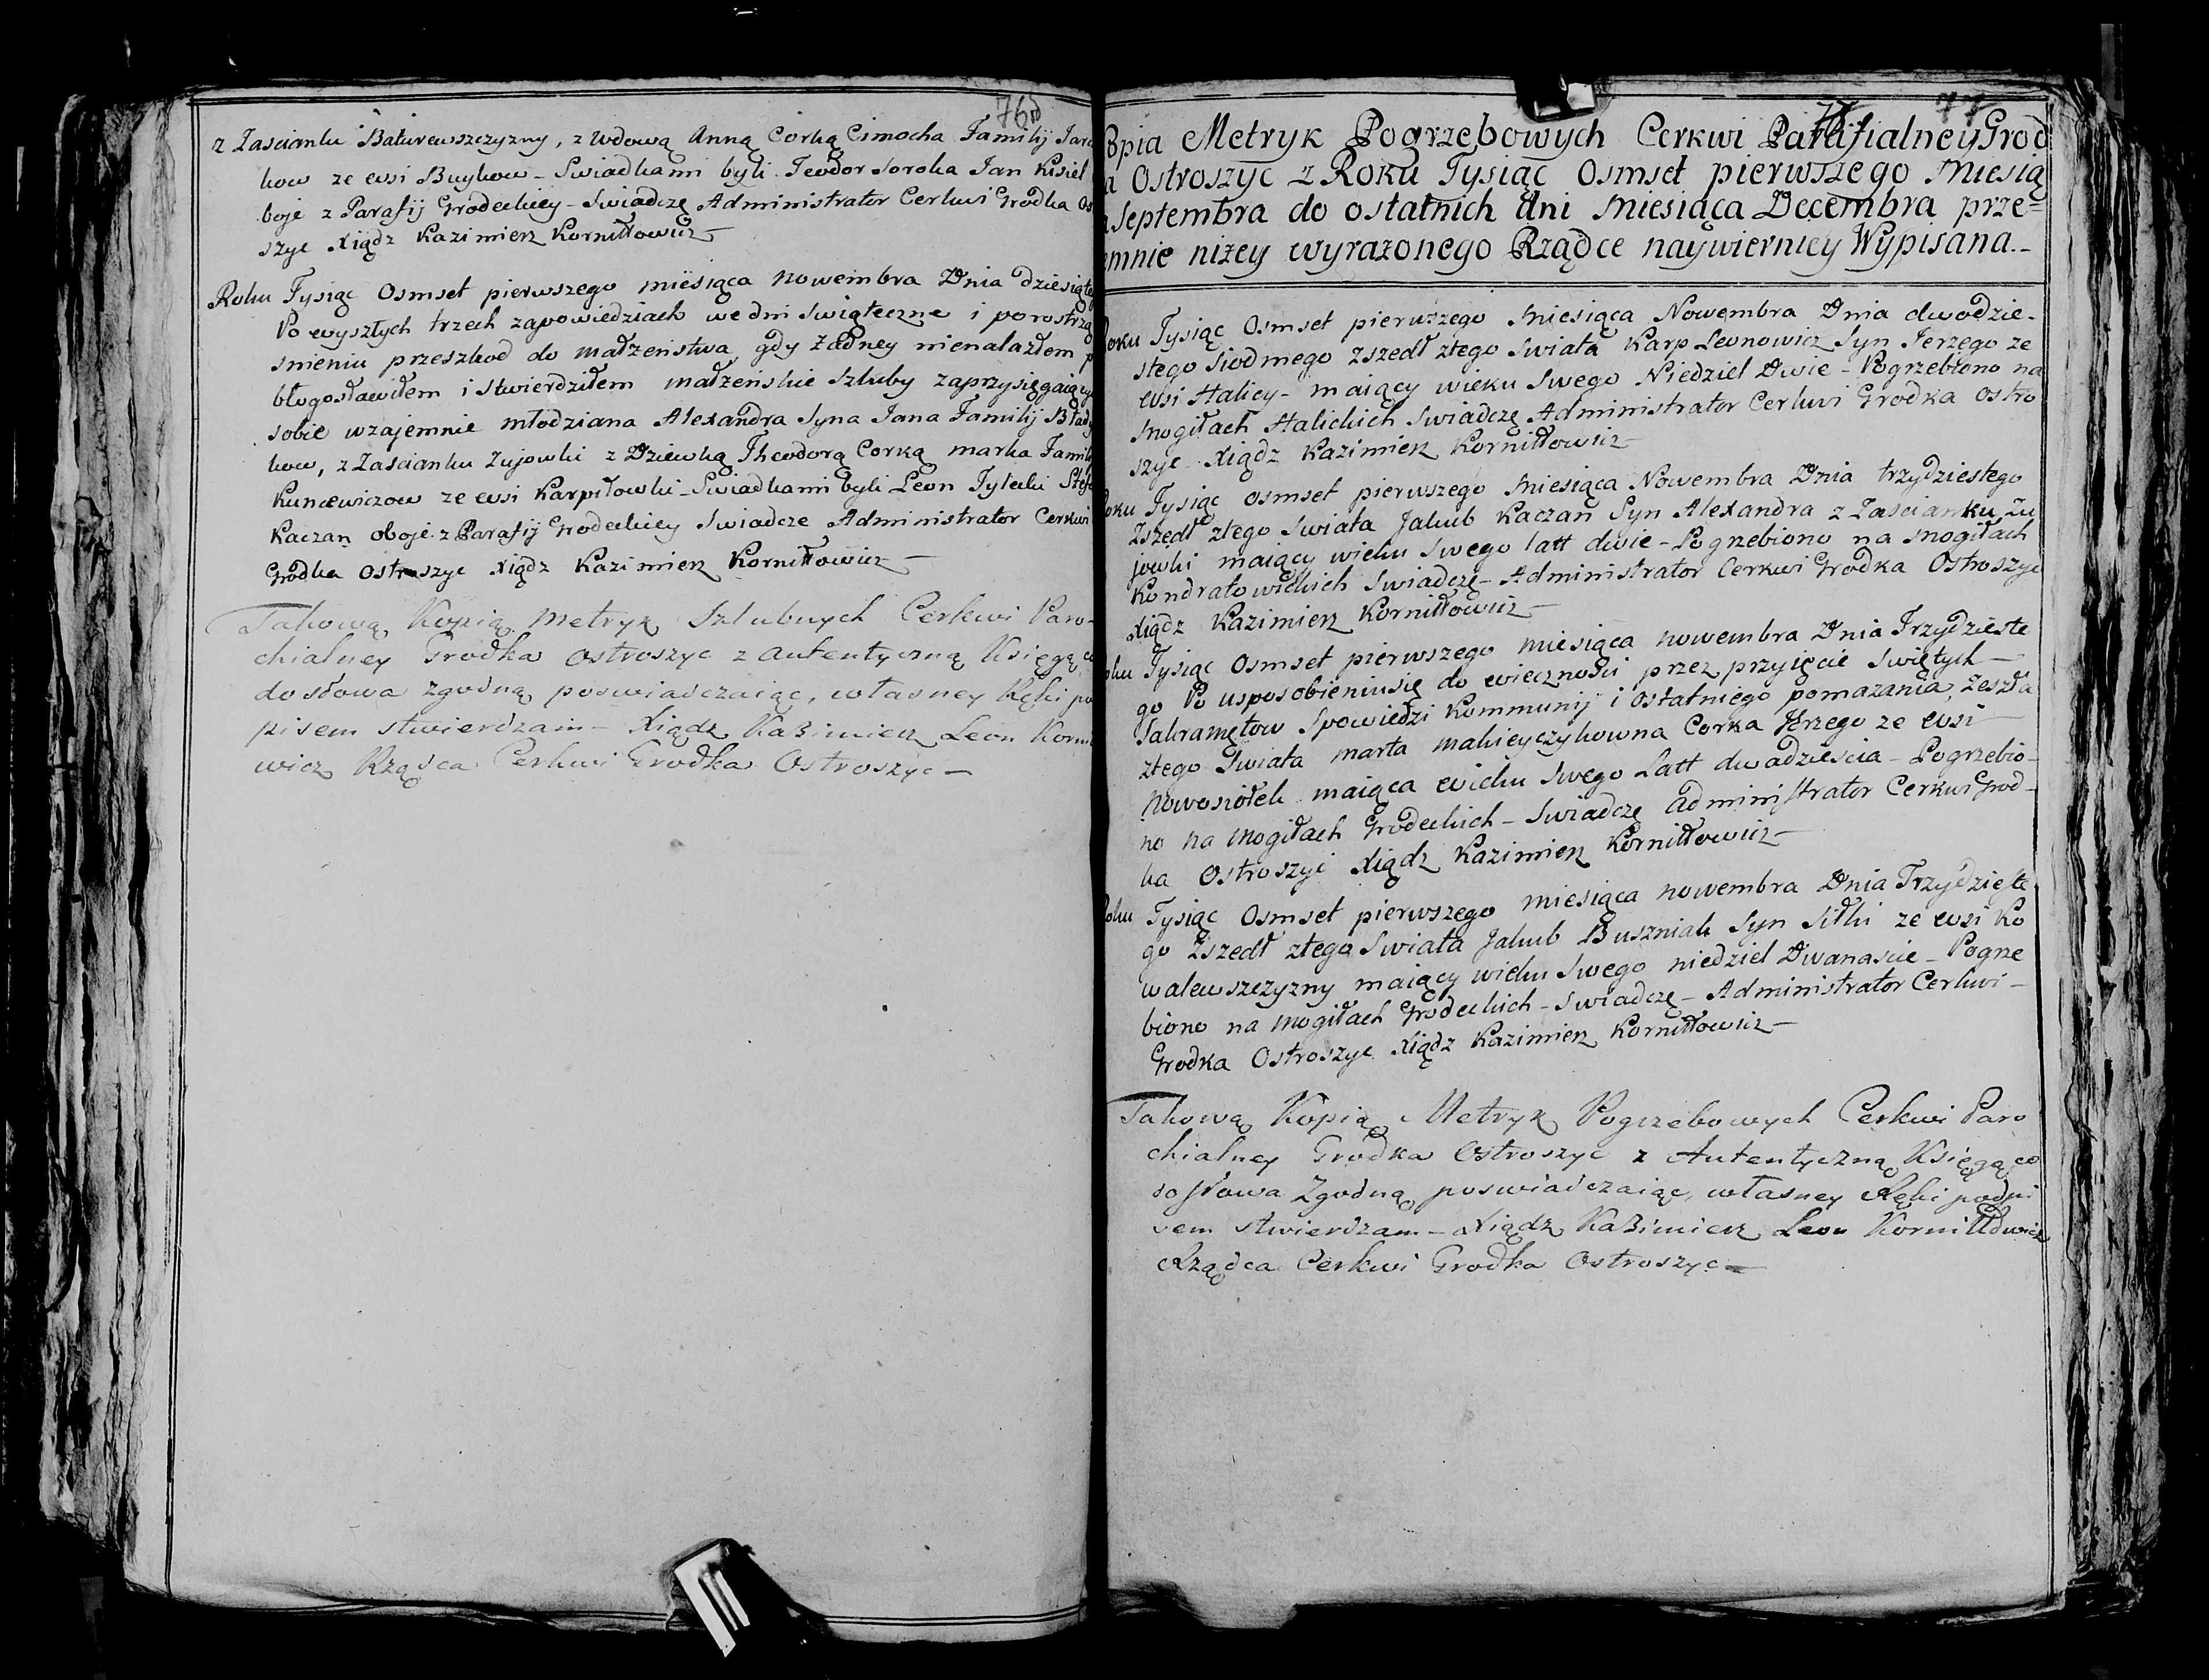 76
z Zascianku Baturewszczyzny, z Wdową Anną Corką Cimocha Familij
kow ze wsi Buykow - Swiadkami byli Teodor Soroka Jan Kisiel
boje z Parafij Grodeckiey - Swiadczę Administrator Cerkwi Grodka Os
szyc Xiądz Kazimierz Korniłłowicz -
Roku Tysiąc Osmset pierwszego miesiąca Nowembra Dnia dziesiąteg
Po wyszłych trzech zapowiedziach we dni Swiąteczne i porostrzą
snieniu przeszkod do małzeństwa, gdy żadney nienalazłem p
błogosławiłem i stwierdziłem małzeńskie szluby zaprzysięgaiący
sobie wzajemnie młodziana Alexandra Syna Jana Familij
kow, z Zascianku Zujowki z Dziewką Theodorą Corką marka Famil
Kuncewiczow ze wsi Karpiłowki - Swiadkami byli Leon Tylecki Stef
Kaczan oboje z Parafij Grodeckiey Swiadcze Administrator Cerkwi
Grodka Ostroszyc Xiądz Kazimierz Korniłłowicz -
Takową Kopią Metryk Szlubnych Cerkwi Paro-
chialney Grodka Ostroszyc z autentyczną Księgą co
do słowa zgodną poswiadczaiąc, własney Ręki po
pisem stwierdzam - Xiądz Kazimierz Leon Korni
wicz Rządca Cerkwi Grodka Ostroszyc -
77
opia Metryk Pogrzebowych Cerkwi Parafialney Grod
a Ostroszyc z Roku Tysiąc Osmset pierwszego Miesią
a Septembra do ostatnich dni Miesiąca Decembra prze=
emnie niżey wyrażonego Rządce naywierniey Wypisana.-
oku Tysiąc Osmset pierwszego Miesiąca Nowembra Dnia dwodzie-
stego siodmego zszedł ztego Swiata Karp Leonowicz Syn Jerzego ze
wsi Halicy - maiący wieku swego Niedziel Dwie - Pogrzebiono na
Mogiłach Halickich Swiadczę Administrator Cerkwi Grodka Ostro
szyc Xiądz Kazimierz Korniłłowicz -
oku Tysiąc osmset pierwszego Miesiąca Nowembra Dnia trzydziestego
Zszedł ztego Swiata Jakub Kaczan Syn Alexandra z Zascianku Zu
jowki maiący wieku swego latt dwie - Pogrzebiono na Mogiłach
Kondratowickich Swiadczę - Administrator Cerkwi Grodka Ostroszyc
Xiądz Kazimierz Korniłłowicz -
oku Tysiąc Osmset pierwszego miesiąca nowembra Dnia Trzydzieste
go Po usposobieniusię do wiecznosci przez przyięcie Swiętych -
Sakramętow Spowiedzi Kommunij i Ostatniego pomazania, Zeszła
ztego Swiata marta makieyczykowna Corka Jerzego ze wsi
Nowosiołek maiąca wieku swego Latt dwadziescia - Pogrzebio-
no na Mogiłach Grodeckich - Swiadczę Administrator Cerkwi Grod-
ka Ostroszyc Xiądz Kazimierz Korniłłowicz -
oku Tysiąc Osmset pierwszego miesiąca nowembra Dnia Trzydzieste
go Zszedł ztego Swiata Jakub Buszniak Syn Siłki ze wsi Ko
walewszczyzny maiący wieku swego niedziel Dwanascie - Pogrze
biono na Mogiłach Grodeckich - Swiadczę - Administrator Cerkwi -
Grodka Ostroszyc Xiądz Kazimierz Korniłłowicz -
Takową Kopią Metryk Pogrzebowych Cerkwi Paro
chialney Grodka Ostroszyc z Autentyczną Księgą co
do słowa Zgodną poswiadczaiąc, własney Ręki podpi
sem stwierdzam - Xiądz Kazimierz Leon Korniłłowicz
Rządca Cerkwi Grodka Ostroszyc -